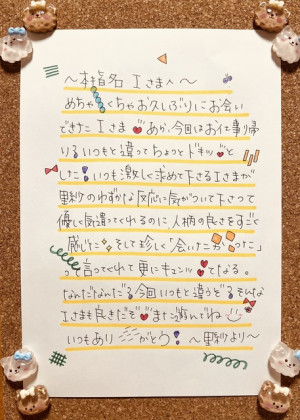 〜本指名 Iさまへ〜
めちゃくちゃお久しぶりにお会い
できたIさま あか、今回はお仕事り帰
りるいつもと違ってちょっとドキッと
した!いつも激しく求めて下さるIさまが
里紗のわずかな反応に気がついて下さって
優しく気遣ってくれるのに、人柄の良さをすごく
感じた そして珍しく「会いたかった」
って言ってくれて更にキュンッてなる。
なんだなんだ 今回いつもと違うぞ そんな
Iさまも良きだぞ また遊んでね
いつもありがとう! 〜里紗より〜